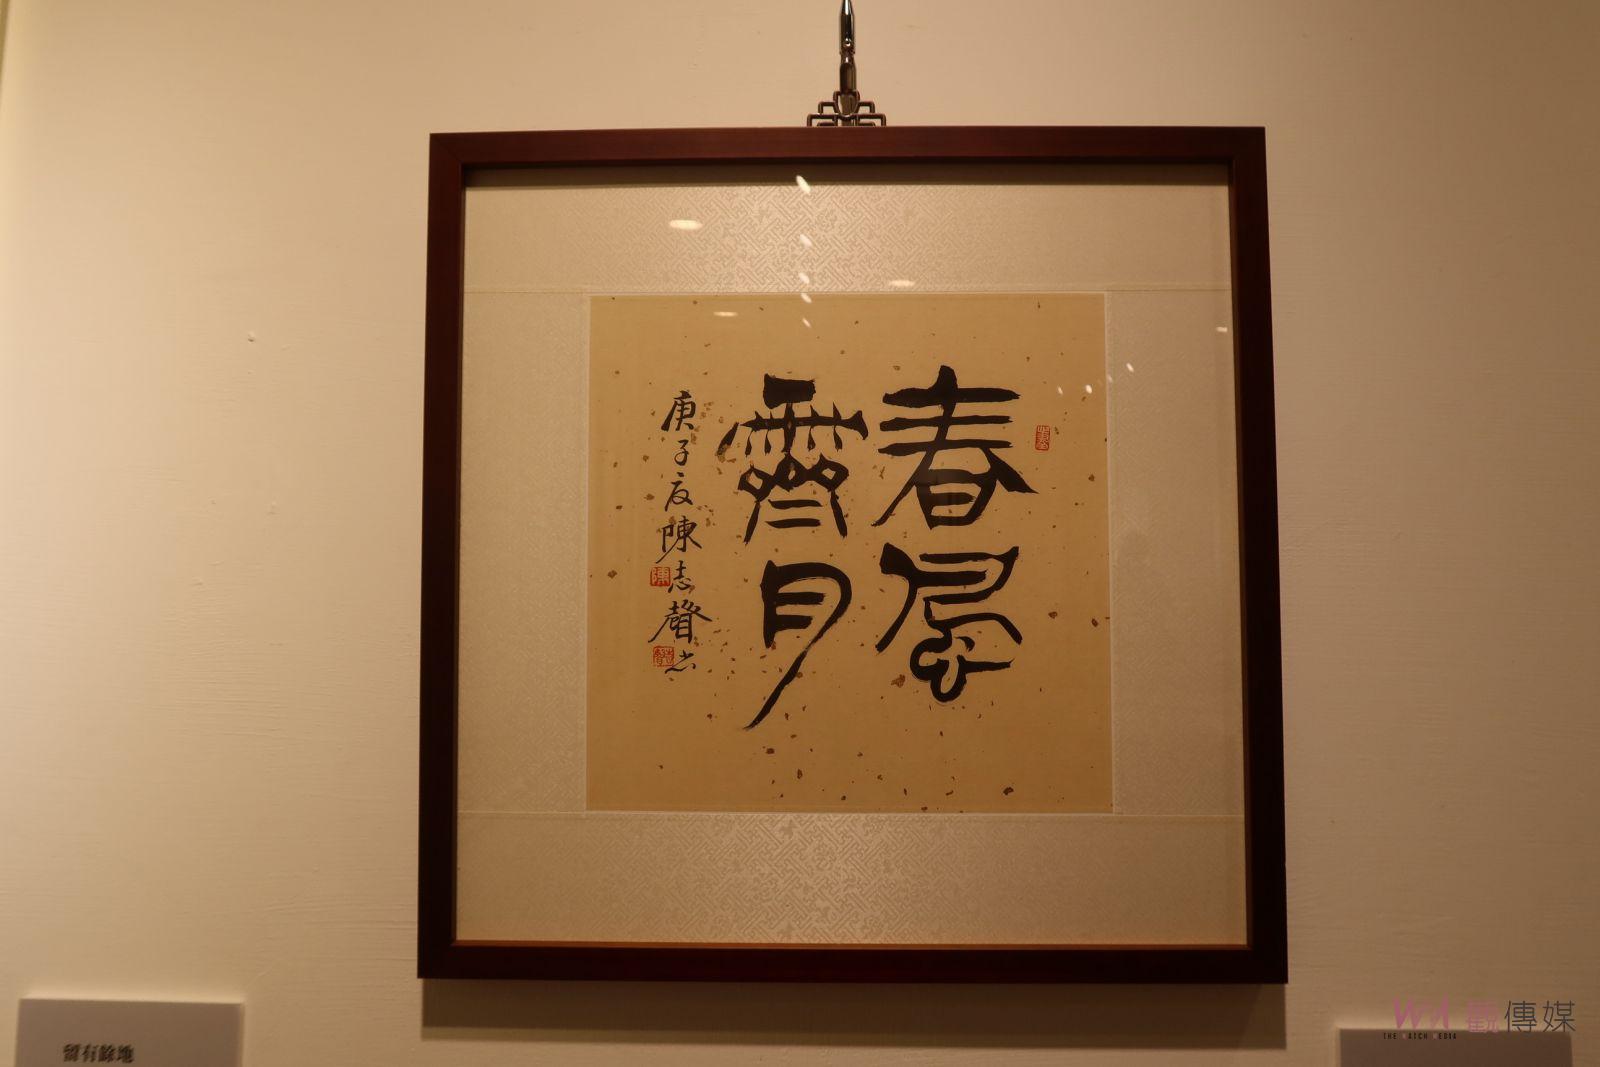 春風
霽月
庚子夏陳志聲
留有餘地
WA 觀傳媒
THE WATCH MEDIA